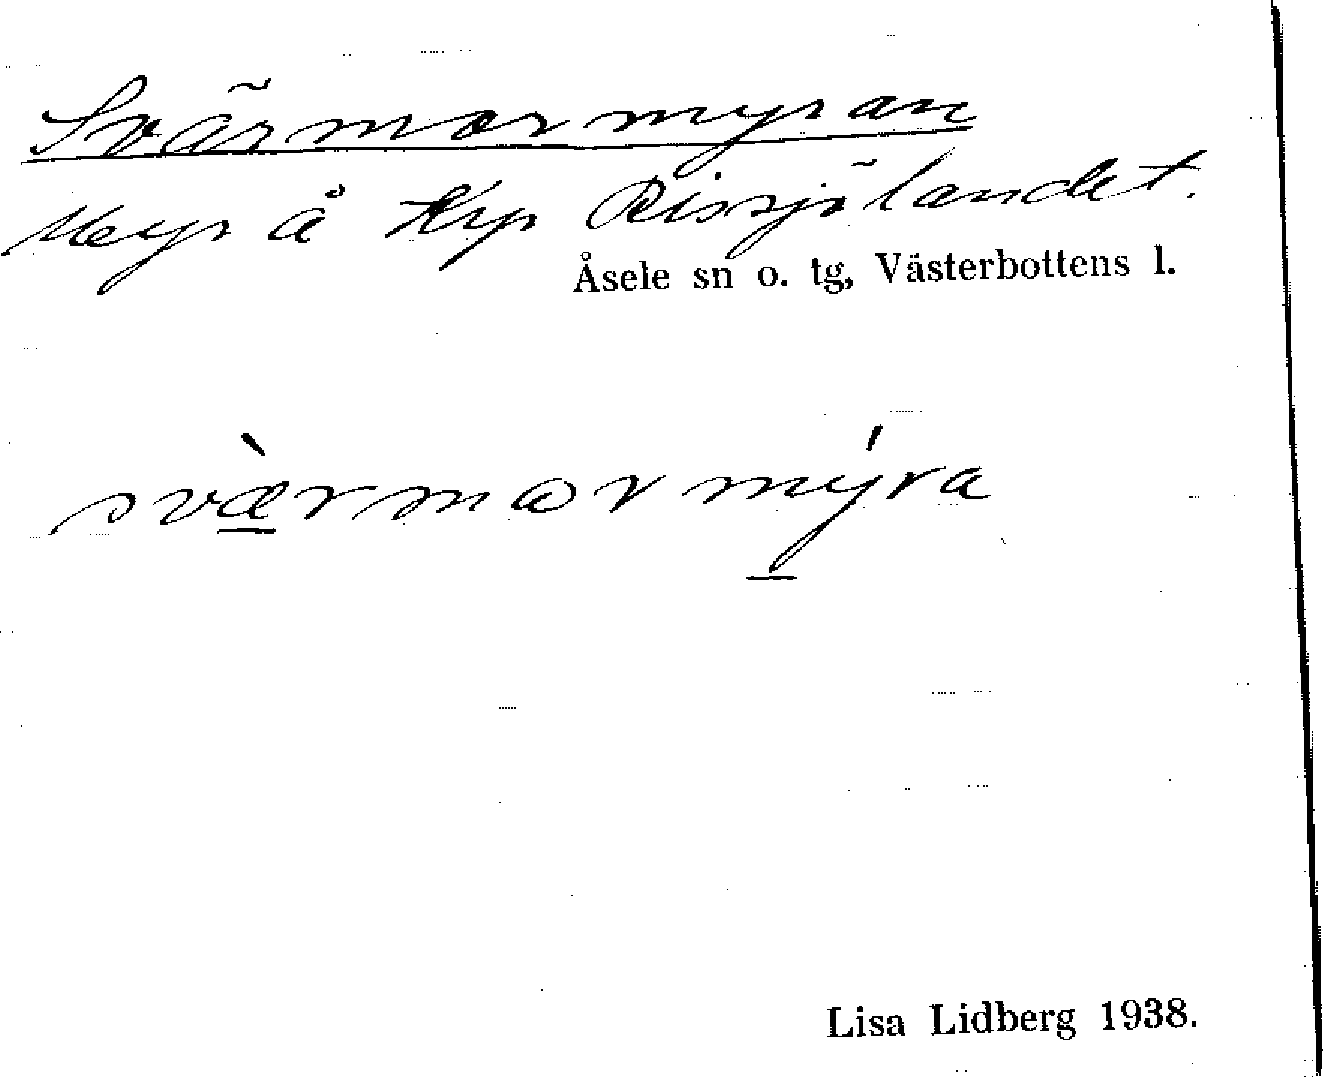 Svärmormyran
Myr å Kyr Rissjölandet.
Åsele sn o. tg, Västerbottens l.
svæ̀rmormýra
Lisa Lidberg 1938.